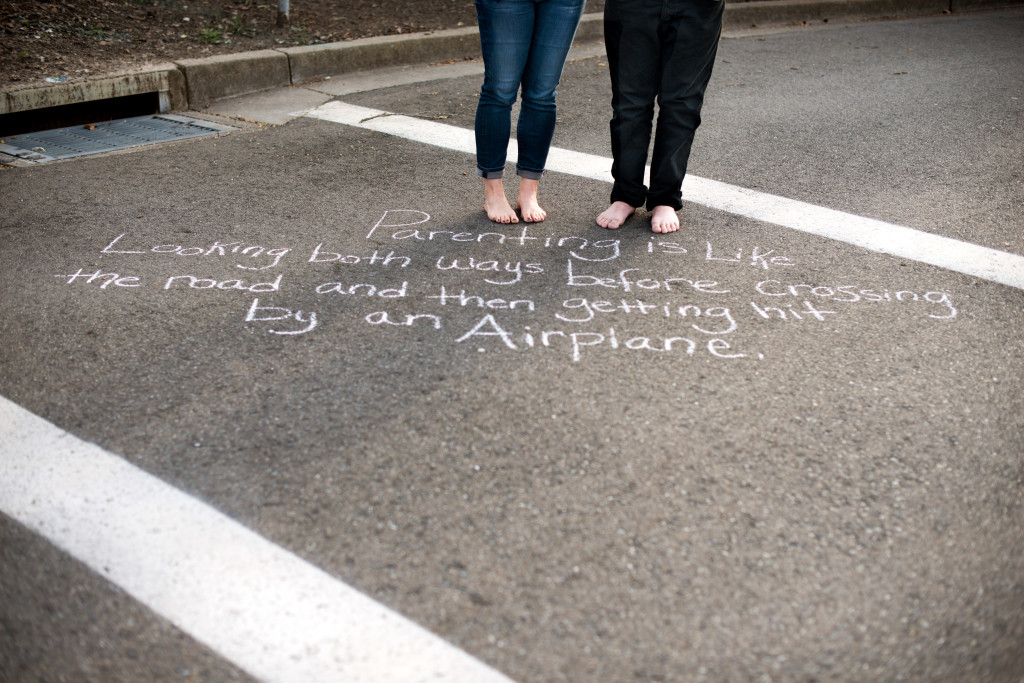 Parenting is Like
Looking both ways before crossing
the road and then getting hit
by an Airplane.